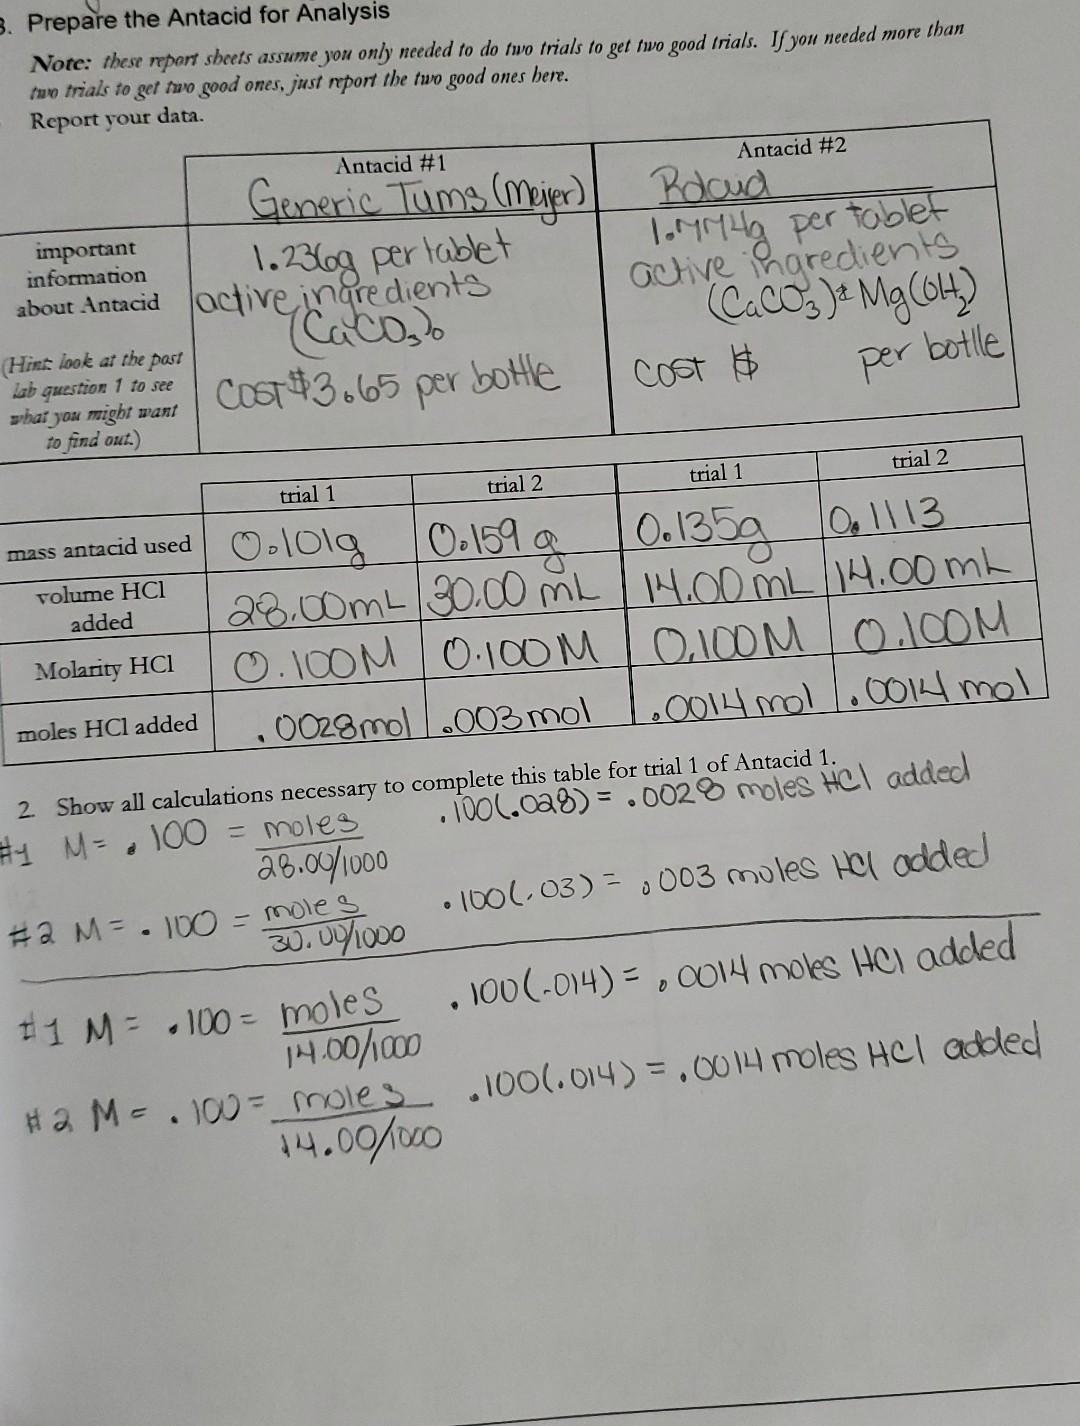 3. Prepare the Antacid for Analysis
Note: these report sheets assume you only needed to do two trials to get two good trials. If you needed more than
two trials to get two good ones, just report the two good ones here.
Report your data.
Antacid #1
Antacid #2
Generic Tums (Meijer)
important
information
about Antacid
(Hint: look at the post
lab question 1 to see
what you might want
to find out.)
1.236g per tablet
active ingredients
(CaCO3)
COST $3.65 per bottle
per tablet
active ingredients
(CaCO3) & Mg(OH2)
COST $ per bottle
trial 1 trial 2 trial 1 trial 2
mass antacid used 0.101g 0.159 g 0.135g 0.1113
volume HCl
added
28.00mL 30.00 mL 14.00 mL 14.00 mL
Molarity HCl 0.100M 0.100M 0.100M 0.100M
moles HCl added .0028mol .003mol .0014 mol .0014 mol
2. Show all calculations necessary to complete this table for trial 1 of Antacid 1.
#1 M= .100 = moles
28.00/1000
.100(.028) = .0028 moles HCl added
#2 M= .100 = moles
30.00/1000
.100(.03) = .003 moles HCl added
#1 M= .100 = moles
14.00/1000
.100(.014) = .0014 moles HCl added
#2 M= .100 = moles
14.00/1000
.100(.014) = .0014 moles HCl added